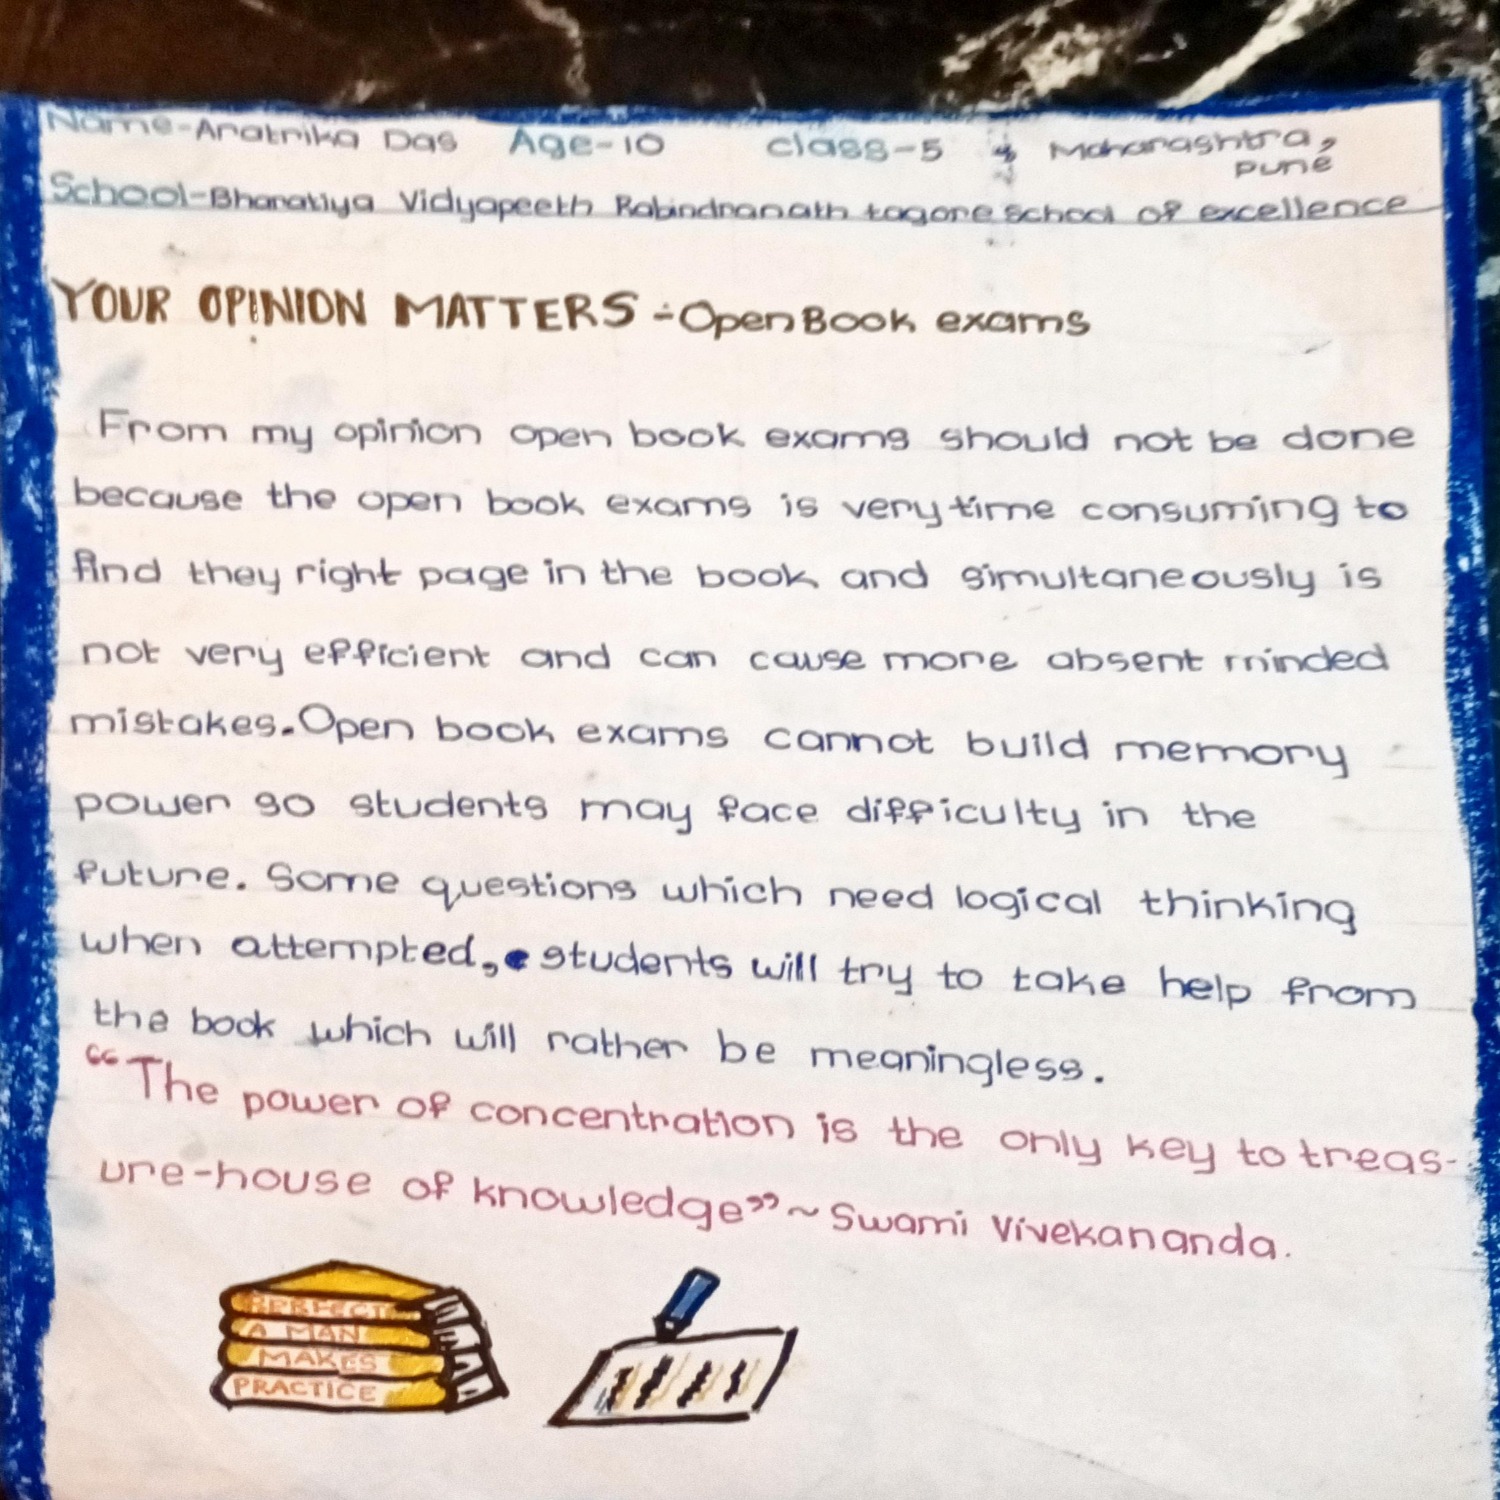 Name-Aratrika Das Age-10 class-5 Maharashtra,
Pune
School-Bharatiya Vidyapeeth Rabindranath tagore school of excellence
YOUR OPINION MATTERS ÷ Open Book exams
From my opinion open book exams should not be done
because the open book exams is very time consuming to
find they right page in the book and simultaneously is
not very efficient and can cause more absent minded
mistakes. Open book exams cannot build memory
power so students may face difficulty in the
future. Some questions which need logical thinking
when attempted, students will try to take help from
the book which will rather be meaningless.
“The power of concentration is the only key to treas-
ure-house of knowledge” ~ Swami Vivekananda.
PERFECT
A MAN
MAKES
PRACTICE